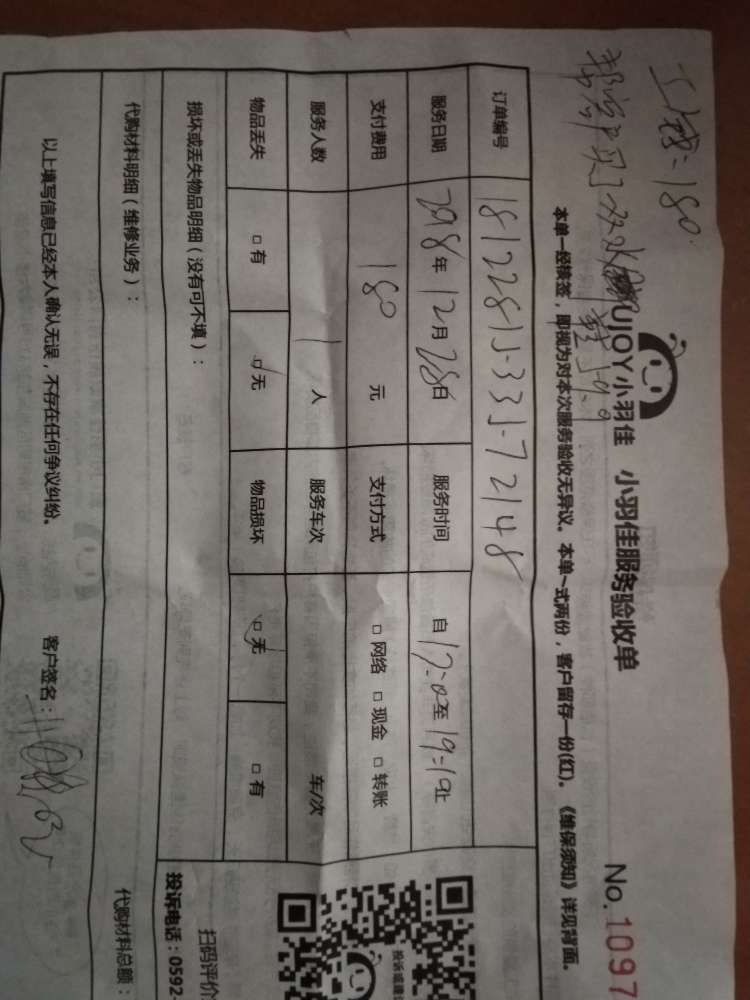 工钱=180
UJOY小羽佳 小羽佳服务验收单
No. 1097
本单一经核签，即视为对本次服务验收无异议。本单一式两份，客户留存一份(红)。《维保须知》详见背面。
订单编号 1812281533572148
服务日期 2018年12月28日 服务时间 自17:0至19:10止
支付费用 180元 支付方式 □网络 □现金 □转账
服务人数 1人 服务车次 车/次
物品丢失 □有 □无 物品损坏 □无 □有
损坏或丢失物品明细（没有可不填）：
扫码评价
投诉电话：0592-
代购材料明细（维修业务）：
代购材料总额：
以上填写信息已经本人确认无误，不存在任何争议纠纷。 客户签名：